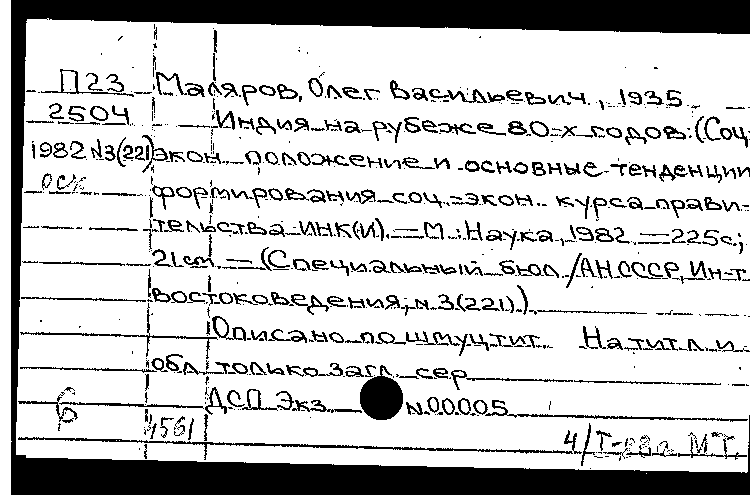 П23 Маляров, Олег Васильевич, 1935
2504 Индия на рубеже 80-х годов: (Соц.
1982 №3(221) экон. положение и основные тенденции
оск формирования соц.-экон. курса прави-
тельства ИНК(И). — М.: Наука, 1982. — 225с;
21cm. — (Специальный бюл. / АН СССР, Ин-т
востоковедения; N 3(221)).
Описано по шмуцтит. На тит. л. и
обл. только загл. сер.
ДСП Экз. N 00005
6 4561 4/Т- МТ.